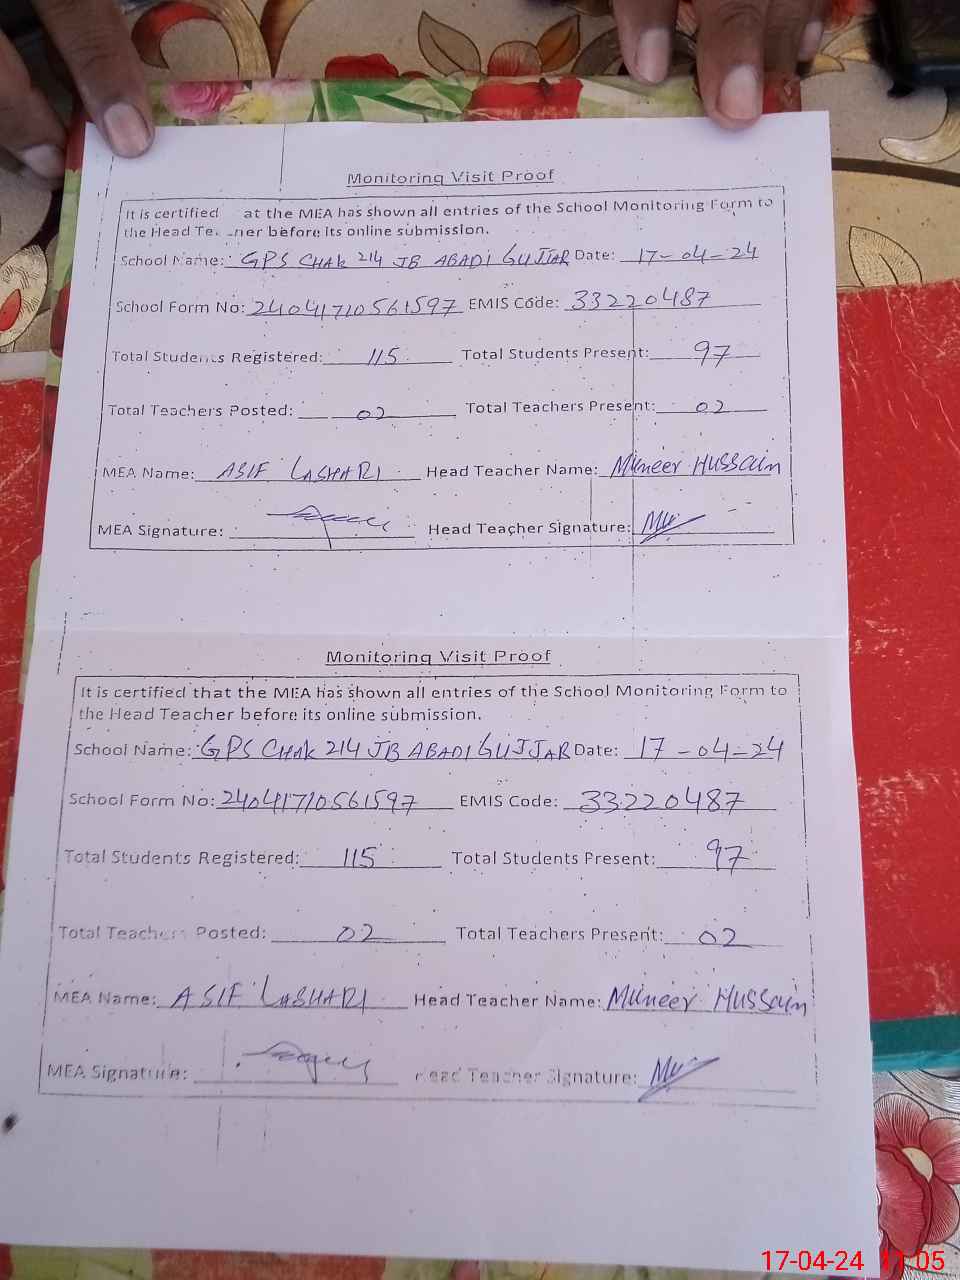 Monitoring Visit Proof
It is certified at the MEA has shown all entries of the School Monitoring Form to
the Head before its online submission.
School Name: GPS CHAK 214 JB ABADI GUJJAR Date: 17-04-24
School Form No: 24041710561597 EMIS Code: 33220487
Total Students Registered: 115 Total Students Present: 97
Total Teachers Posted: 02 Total Teachers Present: 02
MEA Name: ASIF LASHARI Head Teacher Name: Muneer Hussain
MEA Signature: Head Teacher Signature:
Monitoring Visit Proof
It is certified that the MEA has shown all entries of the School Monitoring Form to
the Head Teacher before its online submission.
School Name: GPS CHAK 214 JB ABADI GUJJAR Date: 17-04-24
School Form No: 24041710561597 EMIS Code: 33220487
Total Students Registered: 115 Total Students Present: 97
Total Teachers Posted: 02 Total Teachers Present: 02
MEA Name: ASIF LASHARI Head Teacher Name: Muneer Hussain
MEA Signature: Head Teacher Signature:
17-04-24 11:05